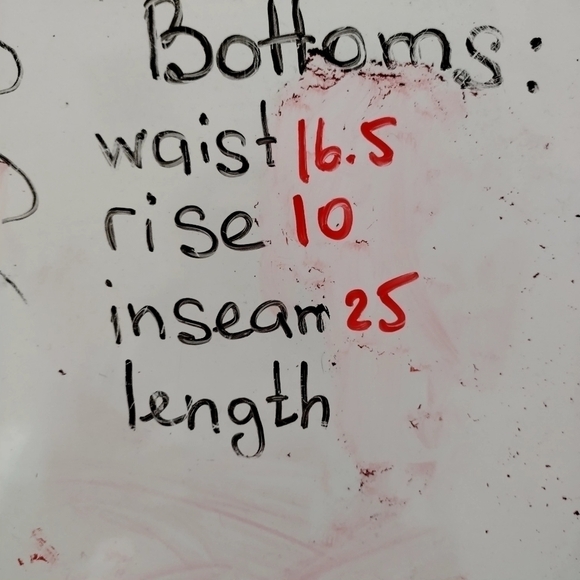 Bottoms:
waist 16.5
rise 10
inseam 25
length